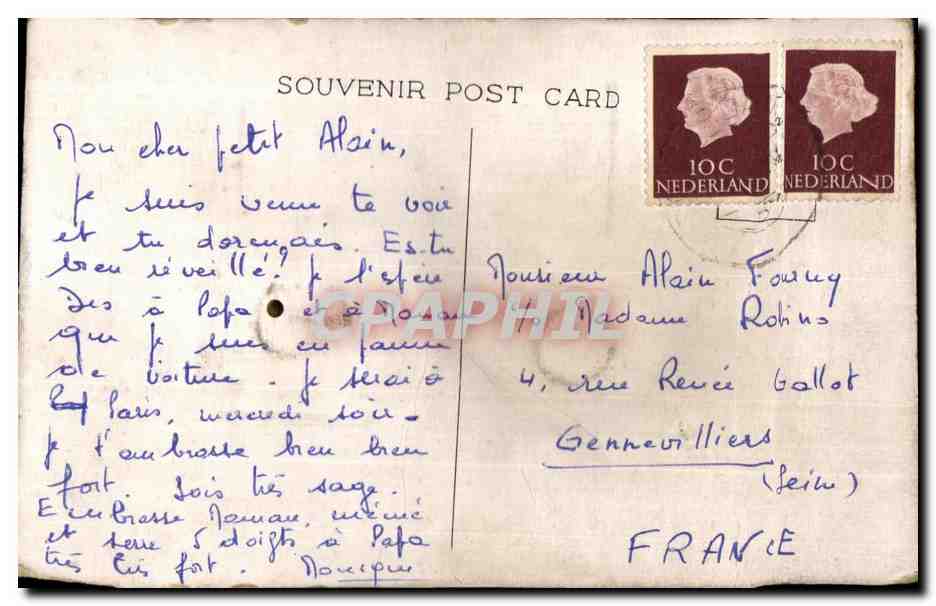 SOUVENIR POST CARD
10 C
NEDERLAND
10 C
NEDERLAND
Mon cher petit Alain,
Je suis venue te voir
et tu dormais. Es-tu
bien réveillé? Je l'espère
Dis à Papa et à Maman
que je suis en panne
de voiture. Je serai à
Paris, mercredi soir.
Je t'embrasse bien bien
fort. Sois très sage.
Embrasse Maman, mémé
et serre 5 doigts à Papa
très très fort. Monique
Monsieur Alain Fourny
c/o Madame Robino
4, rue Renée Gallot
Gennevilliers
(Seine)
FRANCE
CPAPHIL